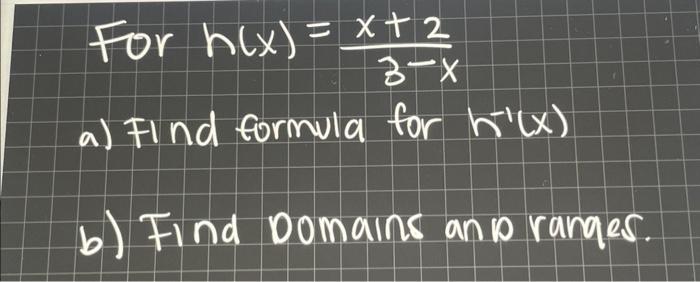 For h(x) = x + 2 / 3 - x
a) Find formula for h⁻¹(x)
b) Find Domains and ranges.